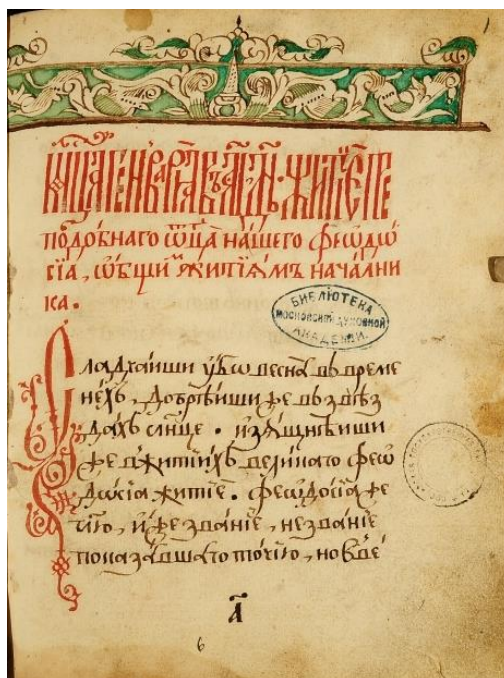 мц҃а генваря въ а҃і дн҃ь. житїе пре
подо́бнаго ѿц҃а на́шего ѳеѡдѡ́
сїа, ѡ́бщиⷨ житїѧ́мъ нача́лни
ка.
БИБЛІОТЕКА
МОСКОВСКОЙ ДУХОВНОЙ
АКАДЕМІИ.
Сладча́иши у҆́бѡ весна̀ въ време
нѐхъ, добрѣ́иши же въ звѣз
да́хъ сл҃нце. изѧ́щнѣиши
же въ житїи́хъ вели́каго ѳеѡ
до́сїа житїѐ. ѳеѡдо́сїа же
гл҃ю, и҆́же зва́нїе, не зва́нїе
показа́вшаго то́чїю, но в ве́
а҃
6